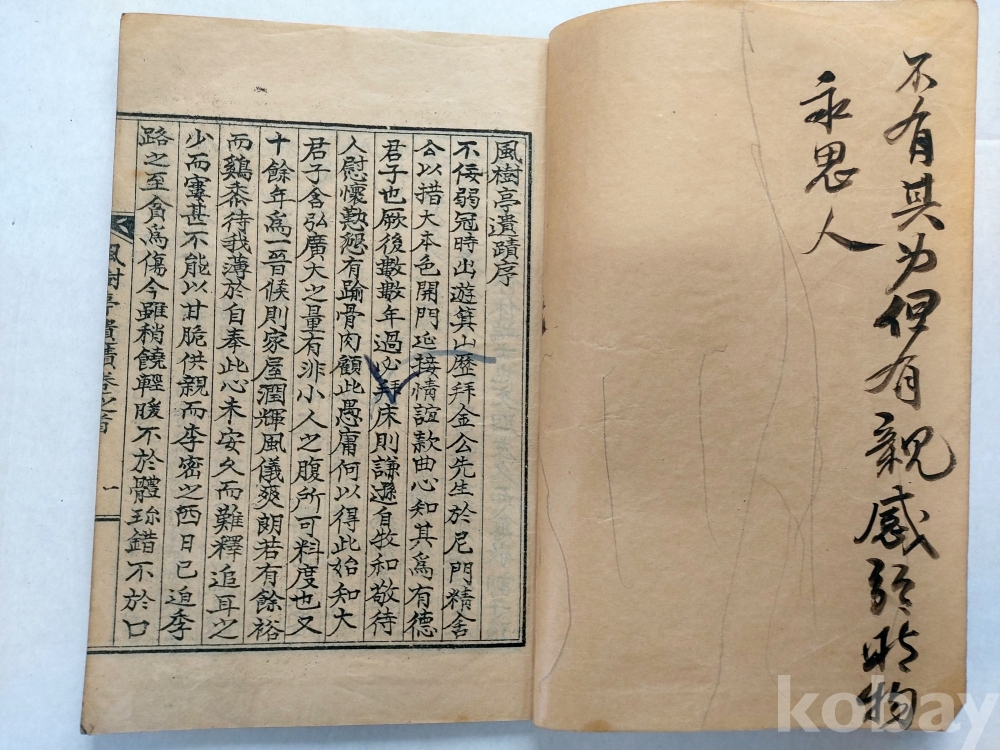 不有其为但有親感 物
永思人
風樹亭遺蹟序
不佞弱冠時出遊箕山歷拜金公先生於尼門精舍
公以措大本色開門延接情誼款曲心知其爲有德
君子也厥後數數年過必拜床則謙遜自牧和敬待
人慰懷懃懇有踰骨肉顧此愚庸何以得此始知大
君子含弘廣大之量有非小人之腹所可料度也又
十餘年爲一晉候則家屋潤輝風儀爽朗若有餘裕
而鷄黍待我薄於自奉此心未安久而難釋追耳之
少而寠甚不能以甘脆供親而李密之西日已迫季
路之至貪爲傷今雖稍饒輕暖不於體珎錯不於口
風樹亭遺蹟卷之首
一
kobay